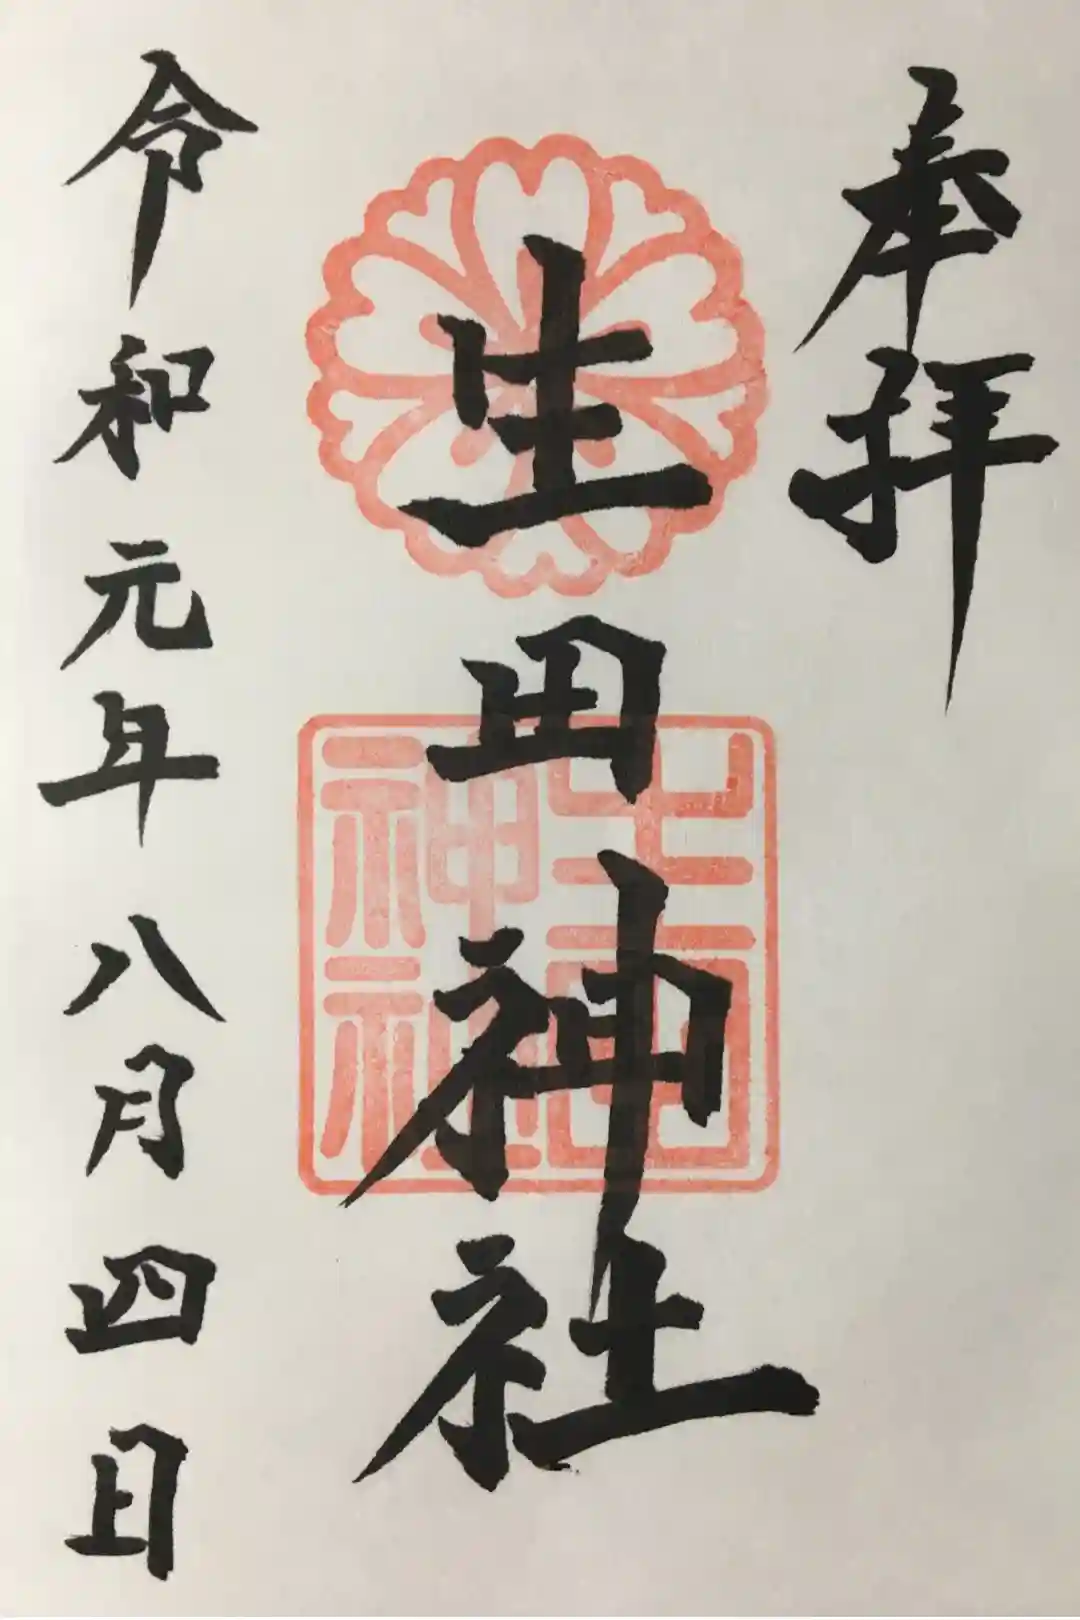 奉拝
生田神社
生田神社
令和元年八月四日